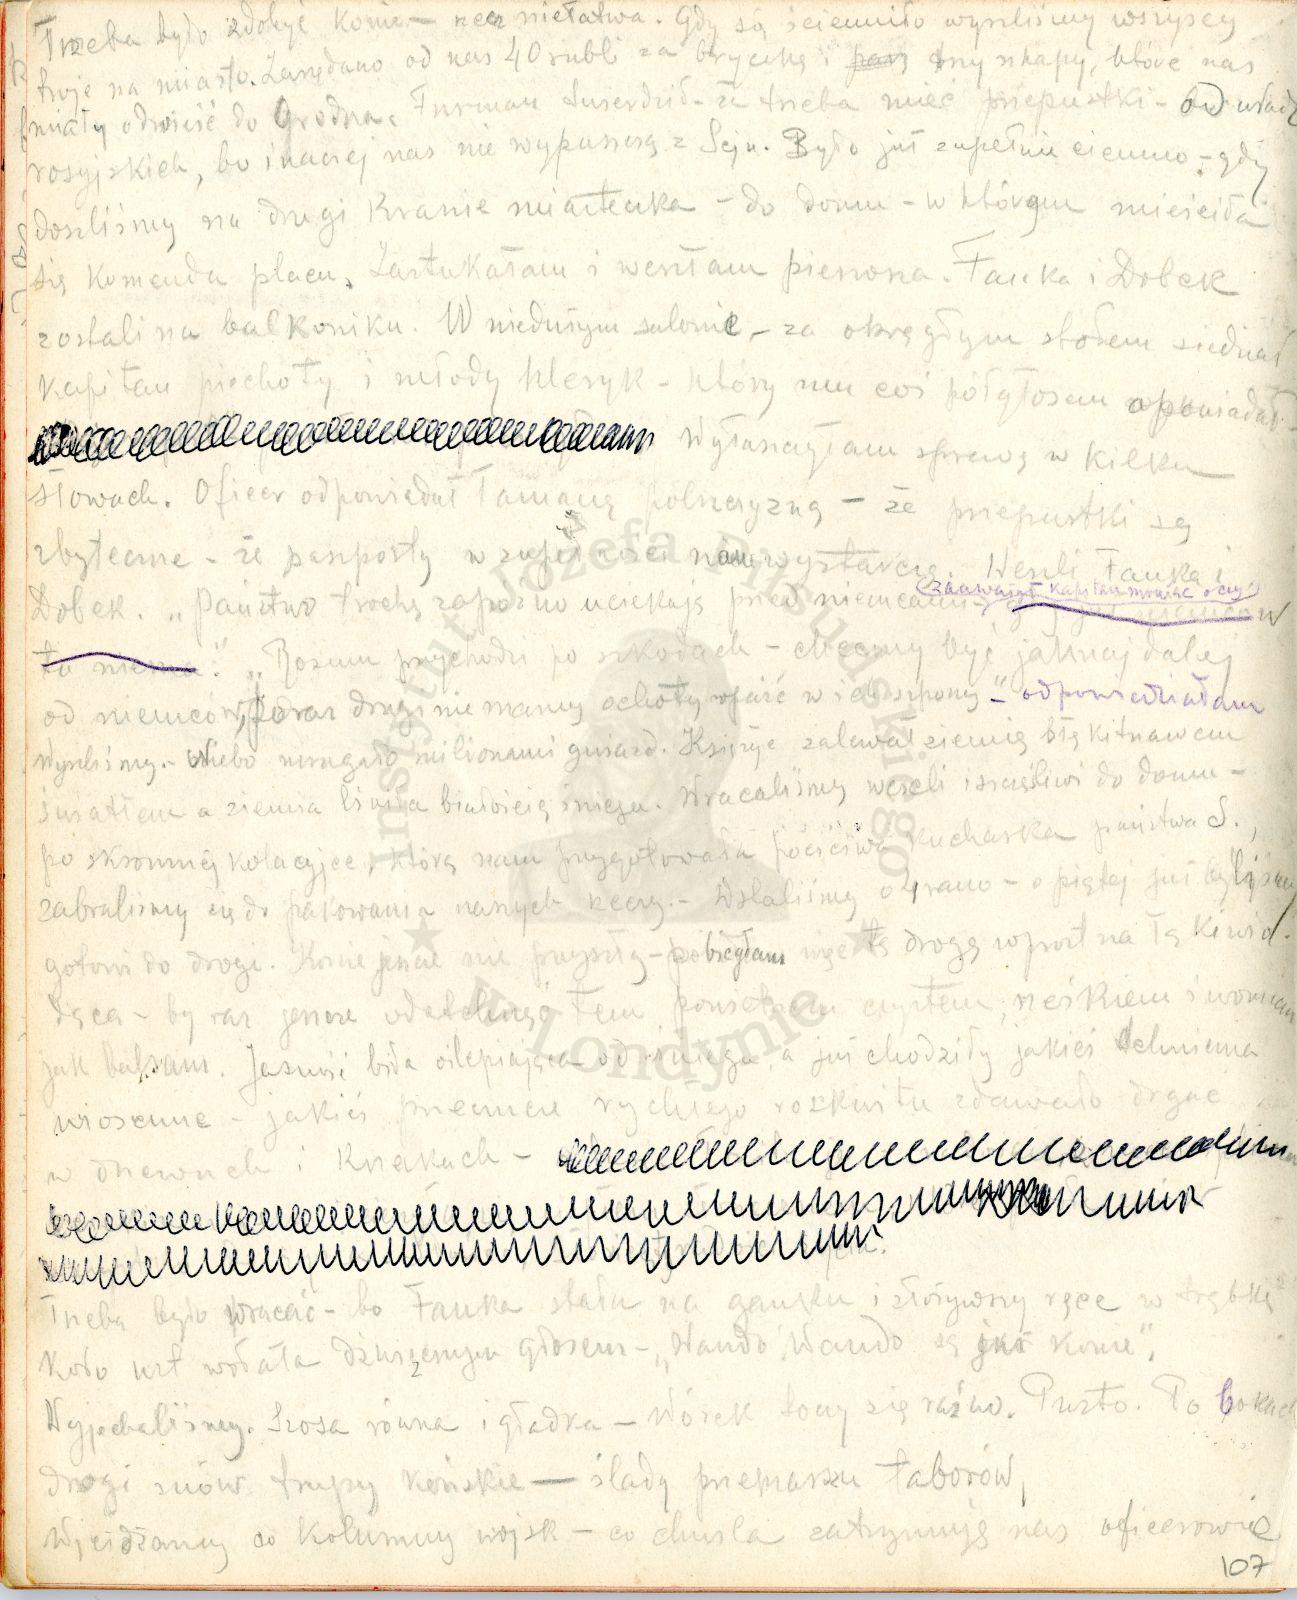 Trzeba było zdobyć konie – rzecz niełatwa. Gdy się ściemniło wyszliśmy wszyscy
troje na miasto. Zażądano od nas 40 rubli za bryczkę i parę trzy szkapy, które nas
miały odwieść do Grodna. Furman twierdził – że trzeba mieć przepustki – od władz
rosyjskich, bo inaczej nas nie wypuszczą z Sejn. Było już zupełnie ciemno – gdy
doszliśmy na drugi kraniec miasteczka – do domu – w którym mieściła
się Komenda placu. Zastukałam i weszłam pierwsza. Fauka i Dobek
zostali na balkoniku. W niedużym salonie – za okrągłym stołem siedział
kapitan piechoty i młody kleryk – który mu coś półgłosem opowiadał.
Wyłuszczyłam sprawę w kilku
słowach. Oficer odpowiedał łamaną polszczyzną – że przepustki są
zbyteczne – że paszporty w zupełności nam wystarczą. Weszli Fauka i
zauważył kapitan mrużąc oczy
Dobek. „Państwo trochę zapóźno uciekają przed niemcami –
"Rozum przychodzi po szkodach – chcemy być jaknajdalej
od niemców, poraz drugi nie mamy ochoty wpaść w ich szpony" – odpowiedziałam
Wyszliśmy. – Niebo mrugało milionami gwiazd. Księżyc zalewał ziemię błękitnawem
światłem a ziemia lśniła białością śniegu. Wracaliśmy weseli i szczęśliwi do domu –
po skromnej kolacyjce, którą nam przygotowała poczciwa kucharka państwa S.,
zabraliśmy się do pakowania naszych rzeczy. – Wstaliśmy o 4 rano – o piątej już byliśmy
gotowi do drogi. Konie jeszcze nie przyszły – pobiegłam więc tą drogą wprost na łąki wio-
dącą – by raz jeszcze odetchnąć tem powietrzem czystem, rześkiem i wonnem
jak balsam. Jasność biła oślepiająca od śniegu, a już chodziły jakieś tchnienia
wiosenne – jakieś przeczucie rychłego rozkwitu zdawało drgać
w drzewach i krzakach –
Trzeba było wracać – bo Fauka stała na ganku i złożywszy ręce w trąbkę
koło ust wołała dźwięcznym głosem – „Wando, Wando są już konie".
Wyjechaliśmy. Szosa równa i gładka – Wózek toczy się raźno. Pusto. Po bokach
drogi znów trupy końskie — ślady przemarszu taborów,
Wjeżdżamy do kolumny wojsk – co chwila zatrzymują nas oficerowie
107